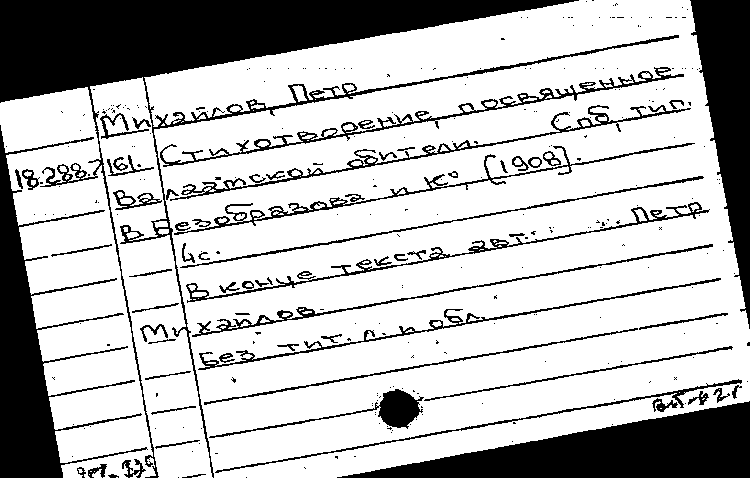 Михайлов, Петр
18.288.7.161. Стихотворение, посвященное
Валаамской обители. Спб, тип.
В Безобразова и К°, [1908].
4с.
В конце текста авт.: Петр
Михайлов
Без тит. л. и обл.